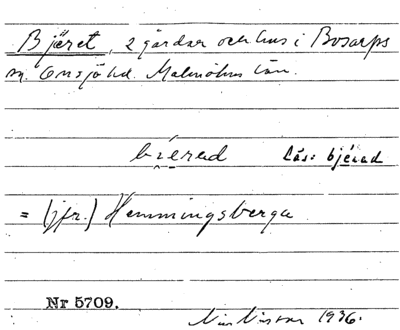 Bjäret, 2 gårdar och hus i Bosarps
sn. Onsjö hd. Malmöhus län.
bi̯erad Läs: bjérad
= (jfr.) Hemmingsberga
Nr 5709.
1936.